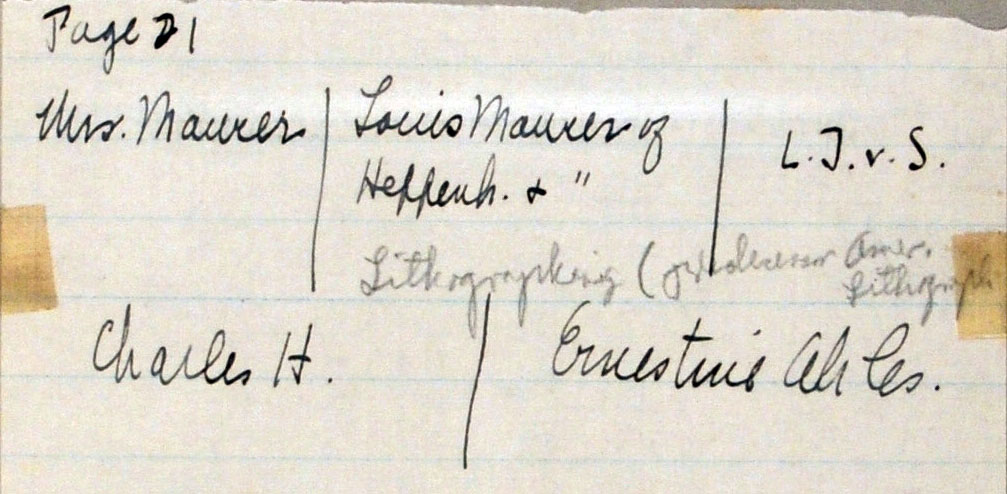 Page 21
Mrs. Maurer | Louis Maurer of | L.J.v.S.
Heppenh. & "
Lithographing (predecessor Amer.
Lithograph
Charles H. | Ernestine Ahles.